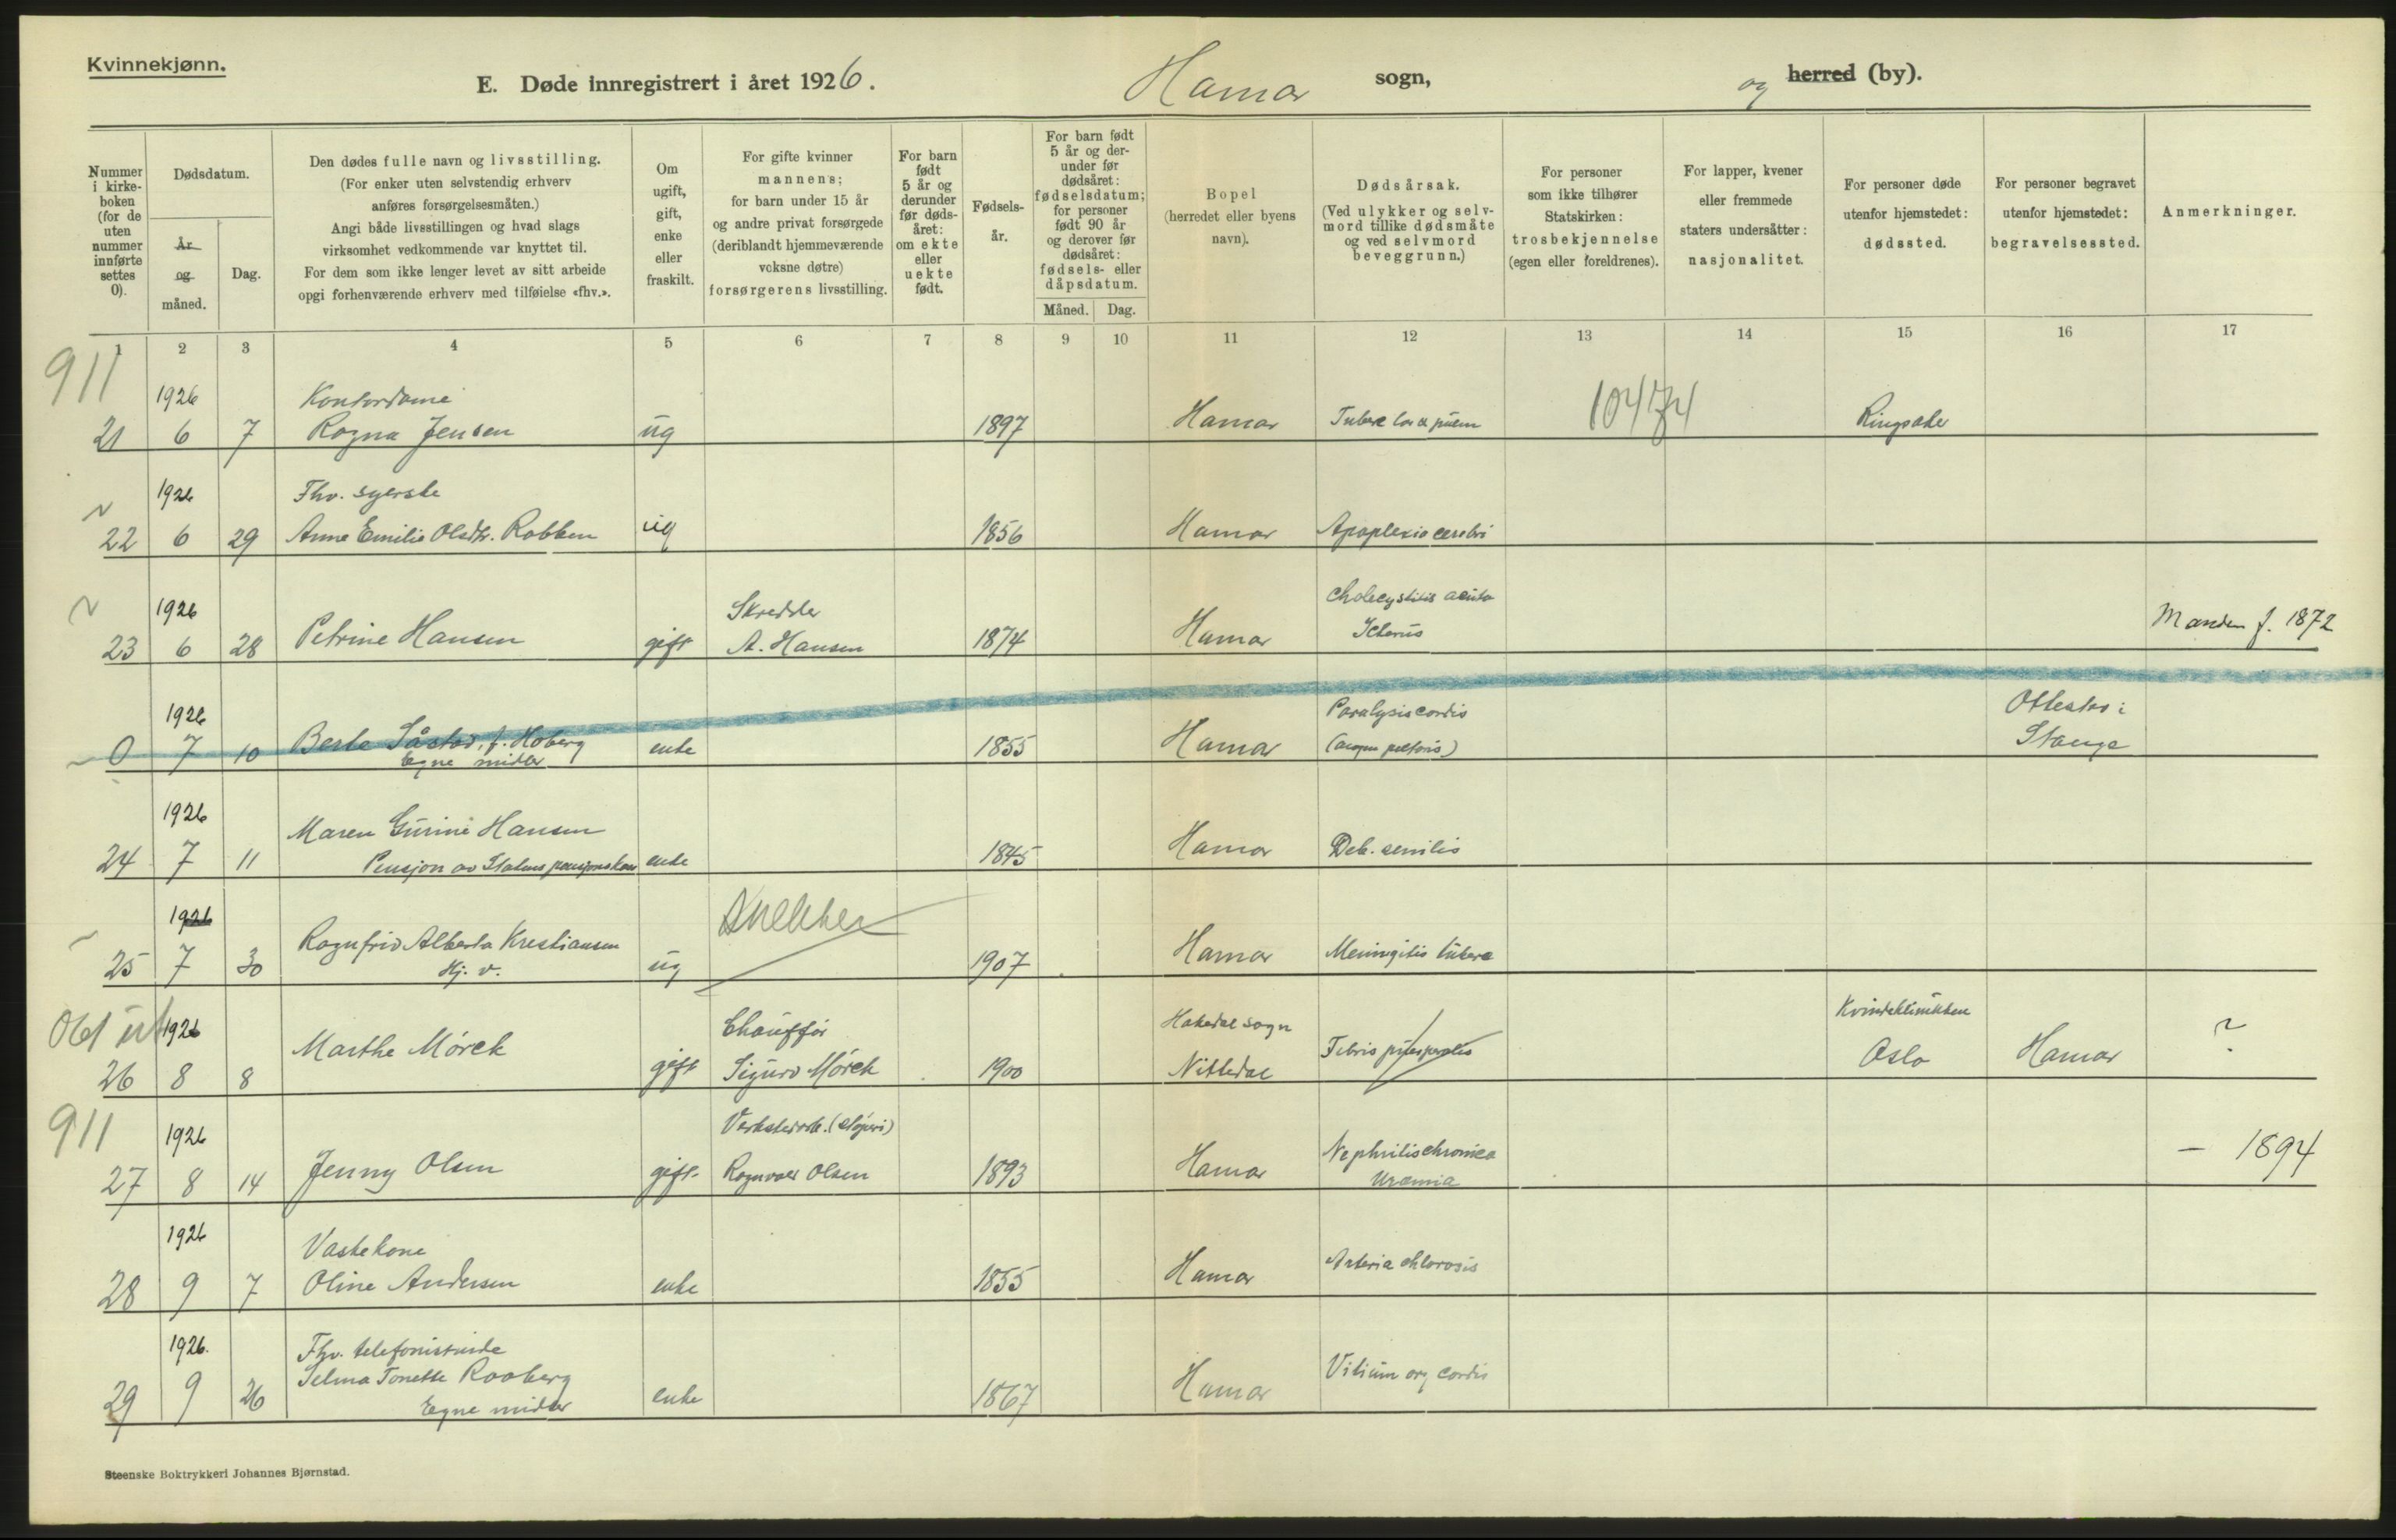 Kvinnekjønn.
E. Døde innregistrert i året 1926. Hamar sogn, og herred (by).
Nummer i kirke-boken (for de uten nummer innførte settes 0).
Dødsdatum.
År og måned.
Dag.
Den dødes fulle navn og livsstilling.
(For enker uten selvstendig erhverv
anføres forsørgelsesmåten.)
Angi både livsstillingen og hvad slags
virksomhet vedkommende var knyttet til.
For dem som ikke lenger levet av sitt arbeide
opgi forhenværende erhverv med tilføielse «fhv.».
Om ugift, gift, enke eller fraskilt.
For gifte kvinner
mannens;
for barn under 15 år
og andre privat forsørgede
(deriblandt hjemmeværende
voksne døtre)
forsørgerens livsstilling.
For barn født 5 år og derunder før døds-året: om ekte eller uekte født.
Fødsels-år.
For barn født 5 år og der-under før dødsåret: fødselsdatum; for personer født 90 år og derover før dødsåret: fødsels- eller dåpsdatum.
Måned. Dag.
Bopel
(herredet eller byens
navn).
Dødsårsak.
(Ved ulykker og selv-
mord tillike dødsmåte
og ved selvmord
beveggrunn.)
For personer
som ikke tilhører
Statskirken:
trosbekjennelse
(egen eller foreldrenes).
For lapper, kvener
eller fremmede
staters undersåtter:
nasjonalitet.
For personer døde
utenfor hjemstedet:
dødssted.
For personer begravet
utenfor hjemstedet:
begravelsessted.
Anmerkninger.
1 2 3 4 5 6 7 8 9 10 11 12 13 14 15 16 17
911
1926 Kontordame
21 6 7 Ragna Jensen ug 1897 Hamar Ringsaker
1926 Fhv. syerske
22 6 29 Anna Emilie Olsdtr. Robben ug 1856 Hamar Apoplexia cerebri
1926 Skredder cholecystitis acuta
23 6 28 Petrine Hansen gift A. Hansen 1874 Hamar Icterus Manden f. 1872
1926 Paralysis cordis Ottestad i
0 7 10 Berte Såstad, f. Hoberg enke 1855 Hamar Stange
Egne midler
1926 Maren Gurine Hansen
24 7 11 Pensjon av Statens pensjonskas enke 1845 Hamar Deb. senilis
1926 Snekker
25 7 30 Ragnfrid Alberta Krestiansen ug 1907 Hamar Meningitis tuberc
Hj. v.
1926 Chauffør Hakedal sogn Kvindeklinikken
26 8 8 Marthe Mórck gift Sigurd Mórck 1900 Nittedal Febris puerperalis Oslo Hamar ?
911
1926 Nephritis chronica
27 8 14 Jenny Olsen gift Ragnvald Olsen 1893 Hamar Uræmia — 1894
1926 Vaskekone
28 9 7 Oline Andersen enke 1855 Hamar
1926. Fhv. telefonistinde
29 9 26 Selma Tonette Roaberg enke 1867 Hamar Vitium org cordis
Egne midler
Steenske Boktrykkeri Johannes Bjørnstad.